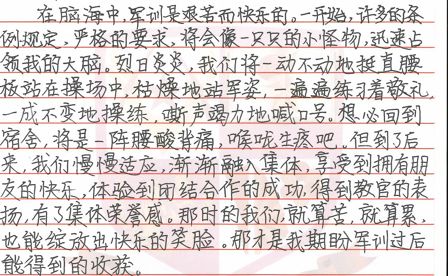 在脑海中,军训是艰苦而快乐的。一开始,许多的条
例规定,严格的要求,将会像一只只的小怪物,迅速占
领我的大脑。烈日炎炎,我们将一动不动地挺直腰
板站在操场中,枯燥地站军姿,一遍遍练习着敬礼,
一成不变地操练,嘶声竭力地喊口号。想必回到
宿舍,将是一阵腰酸背痛,喉咙生疼吧。但到了后
来,我们慢慢适应,渐渐融入集体,享受到拥有朋
友的快乐,体验到团结合作的成功,得到教官的表
扬,有了集体荣誉感。那时的我们,就算苦,就算累,
也能绽放出快乐的笑脸。那才是我期盼军训过后
能得到的收获。